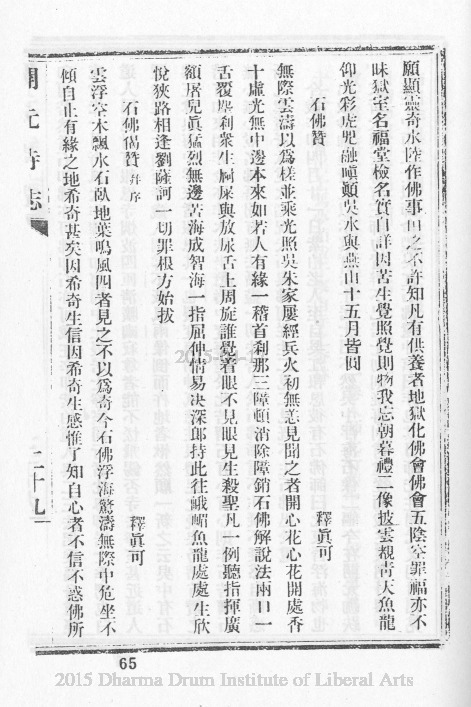 願顯靈奇水陸作佛事囬之不許知凡有供養者地獄化佛會佛會五陰空罪福亦不
昧獄室名福堂檢名實自詳因苦生覺照覺則物我忘朝暮禮二像披雲覩靑天魚龍
仰光彩虎兕融嗔顚吳水與燕山十五月皆圓
石佛贊
釋眞可
無際雲濤以爲槎並乘光照吳朱家屢經兵火初無恙見聞之者開心花心花開處香
十虛光無中邊本來如若人有緣一稽首刹那三障頓消除障銷石佛解說法兩口一
舌覆塵利衆生屙屎與放尿舌上周旋誰覺着眼不見眼見生殺聖凡一例聽指揮廣
額屠兒眞猛烈無邊苦海成智海一指屈伸情易决深郎持此往峨嵋魚龍處處生欣
悅狹路相逢劉薩訶一切罪根方始拔
石佛偈贊 幷序
釋眞可
雲浮空木飄水石臥地葉鳴風四者見之不以爲奇今石佛浮海驚濤無際中危坐不
傾自止有緣之地希奇甚矣因希奇生信因希奇生感惟了知自心者不信不惑佛所
開元寺志
二十九
65
2015 Dharma Drum Institute of Liberal Arts